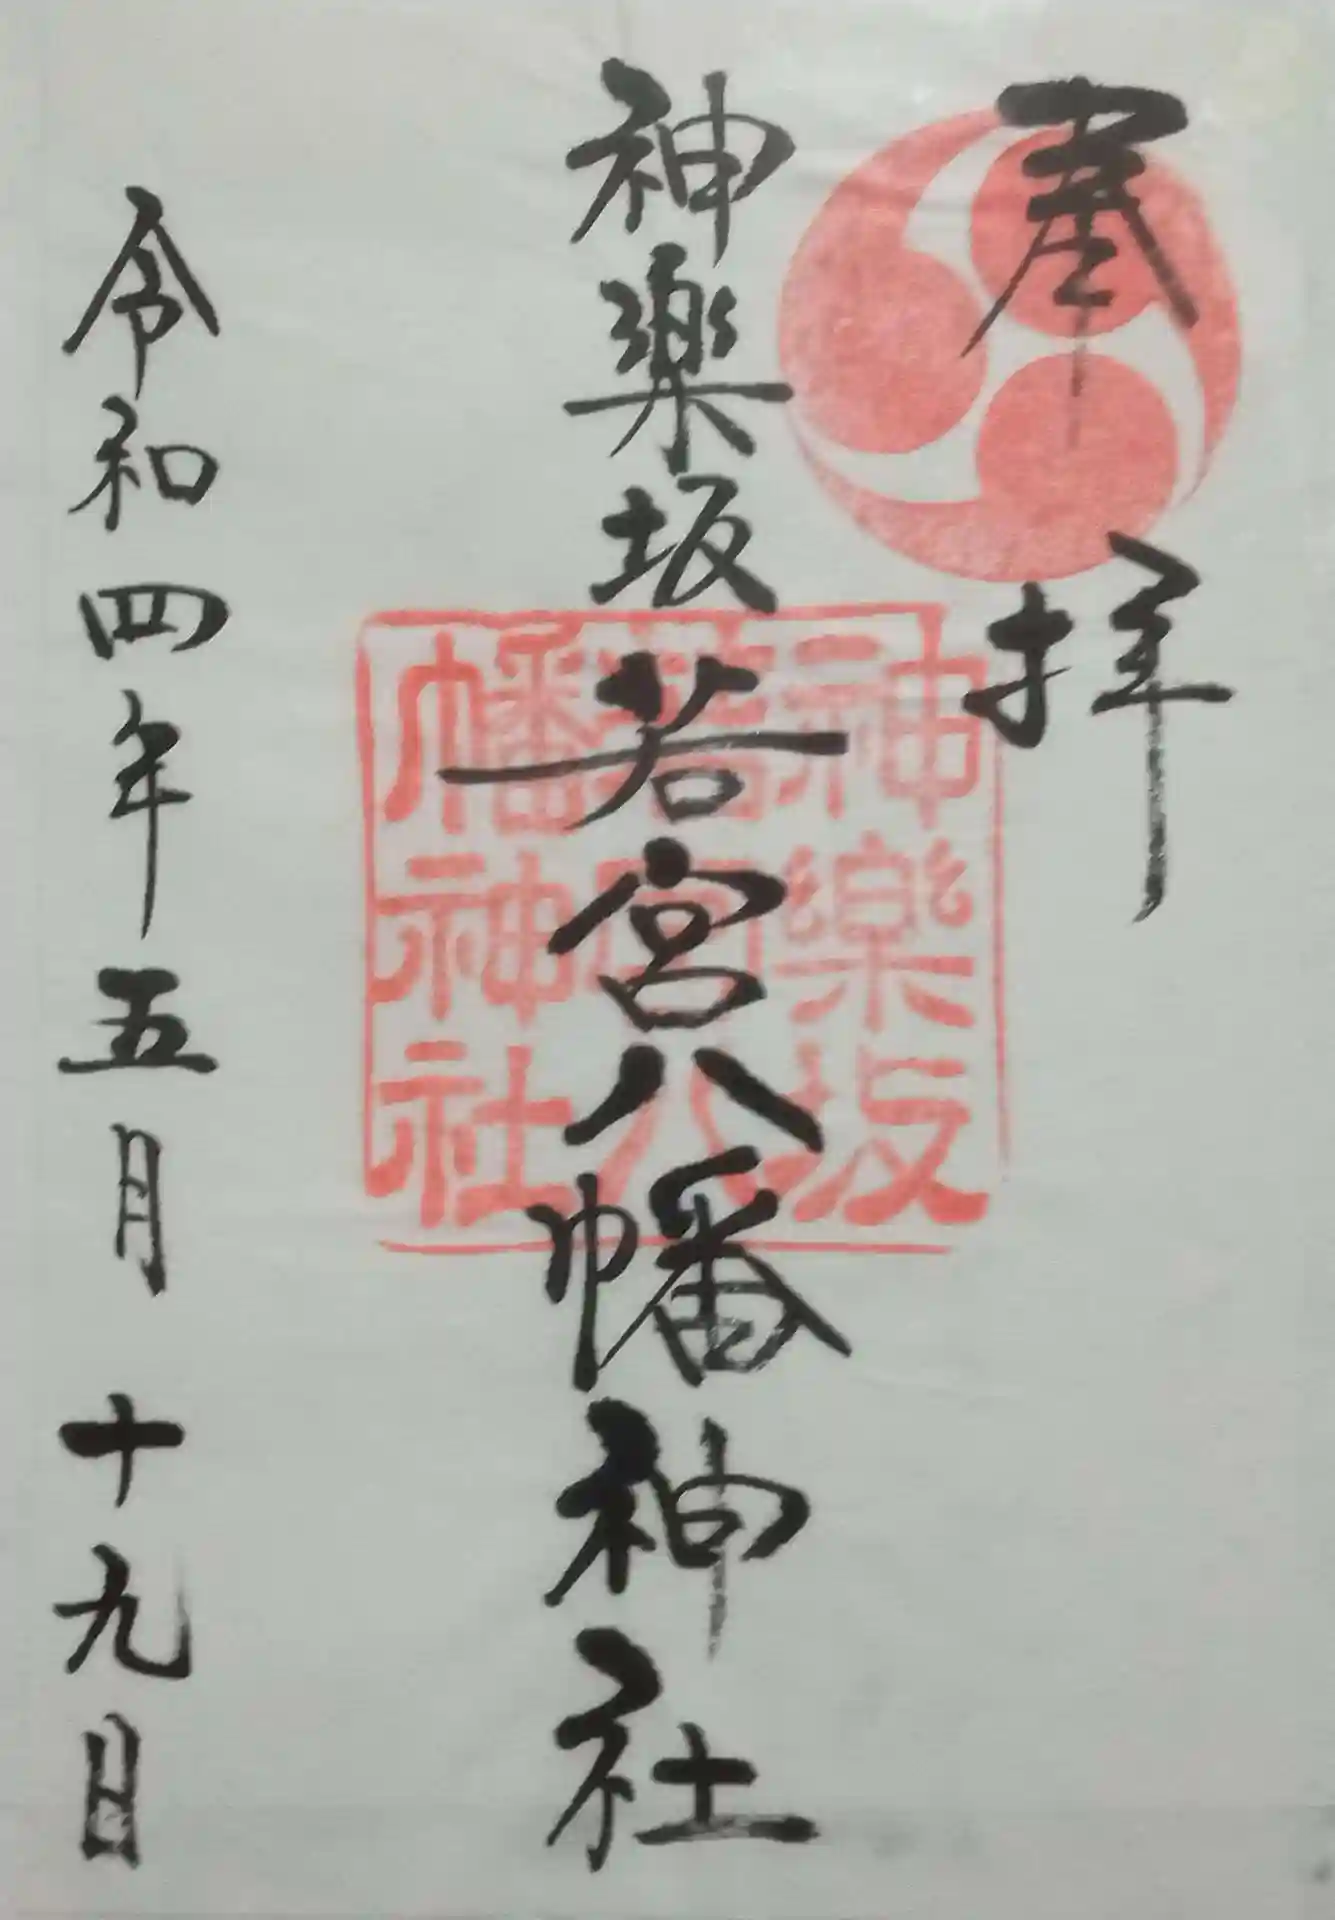 奉拝
神楽坂若宮八幡神社
神樂坂
若宮八
幡神社
令和四年五月十九日